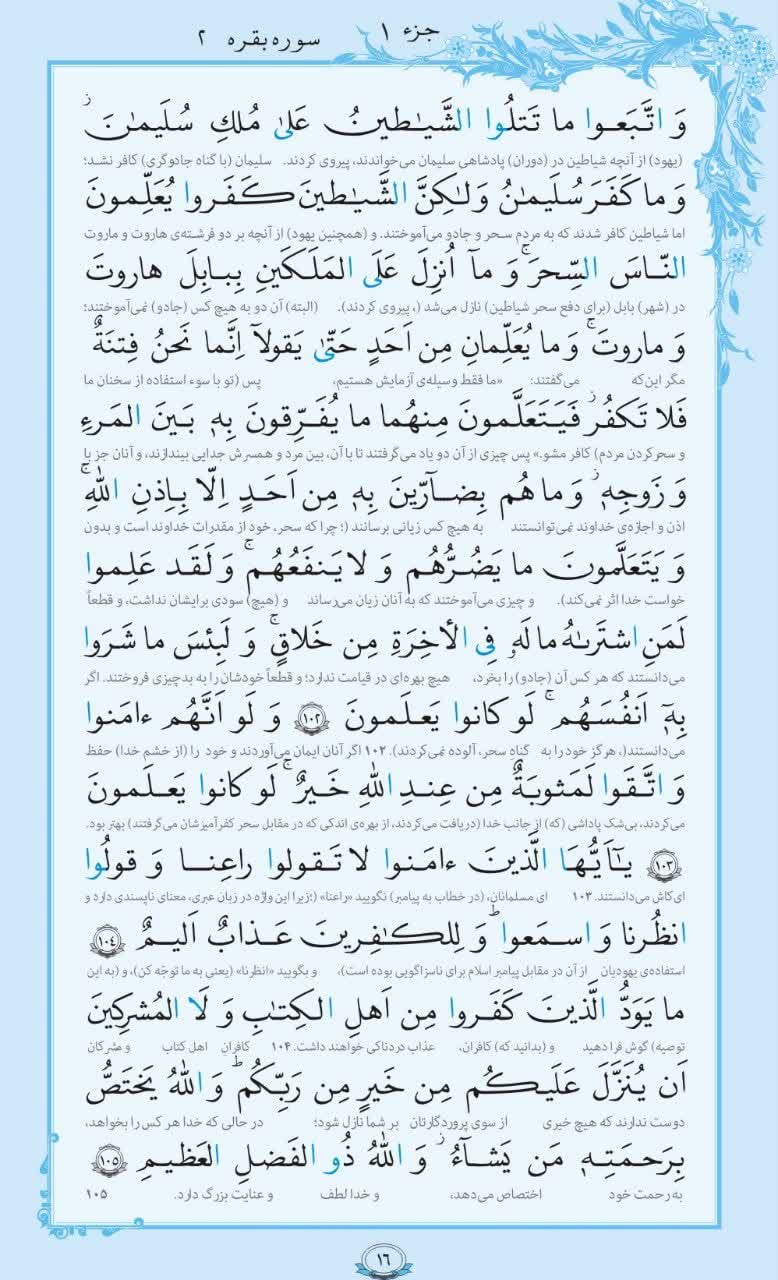 جزء ۱
سوره بقره ۲
وَ اتَّبَعوا ما تَتلُوا الشَّيـٰطينُ عَلىٰ مُلكِ سُلَيمـٰنَ ۖ
(یهود) از آنچه شیاطین در (دوران) پادشاهی سلیمان می‌خواندند، پیروی کردند. سلیمان (با گناه جادوگری) کافر نشد؛
وَ ما كَفَرَ سُلَيمـٰنُ وَلـٰكِنَّ الشَّيـٰطينَ كَفَروا يُعَلِّمونَ
اما شیاطین کافر شدند که به مردم سحر و جادو می‌آموختند. و (همچنین یهود) از آنچه بر دو فرشته‌ی هاروت و ماروت
النّاسَ السِّحرَ ۚ وَ مآ اُنزِلَ عَلَى المَلَكَينِ بِبابِلَ هاروتَ
در (شهر) بابل (برای دفع سحر شیاطین) نازل می‌شد (، پیروی کردند). (البته) آن دو به هیچ کس (جادو) نمی‌آموختند؛
وَ ماروتَ ۚ وَ ما يُعَلِّمانِ مِن اَحَدٍ حَتّىٰ يَقولآ اِنَّما نَحنُ فِتنَةٌ
مگر این‌که می‌گفتند: «ما فقط وسیله‌ی آزمایش هستیم، پس (تو با سوء استفاده از سخنان ما
فَلا تَكفُر ۖ فَيَتَعَلَّمونَ مِنهُما ما يُفَرِّقونَ بِهٖ بَينَ المَرءِ
و سحر کردن مردم) کافر مشو.» پس چیزی از آن دو یاد می‌گرفتند تا با آن، بین مرد و همسرش جدایی بیندازند، و آنان جز با
وَ زَوجِهٖ ۚ وَ ما هُم بِضآرّينَ بِهٖ مِن اَحَدٍ اِلّا بِاِذنِ اللهِ ۚ
اذن و اجازه‌ی خداوند نمی‌توانستند به هیچ کس زیانی برسانند (؛ چرا که سحر، خود از مقدرات خداوند است و بدون
وَ يَتَعَلَّمونَ ما يَضُرُّهُم وَ لا يَنفَعُهُم ۚ وَ لَقَد عَلِموا
خواست خدا اثر نمی‌کند). و چیزی می‌آموختند که به آنان زیان می‌رساند و (هیچ) سودی برایشان نداشت، و قطعاً
لَمَنِ اشتَرىٰهُ ما لَهٗ فِى الأخِرَةِ مِن خَلاقٍ ۚ وَ لَبِئسَ ما شَرَوا
می‌دانستند که هر کس آن (جادو) را بخرد، هیچ بهره‌ای در قیامت ندارد؛ و قطعاً خودشان را به بدچیزی فروختند. اگر
بِهٖٓ اَنفُسَهُم ۚ لَو كانوا يَعلَمونَ ۱۰۲ وَ لَو اَنَّهُم ءامَنوا
می‌دانستند (، هرگز خود را به گناهِ سحر، آلوده نمی‌کردند). ۱۰۲ اگر آنان ایمان می‌آوردند و خود را (از خشم خدا) حفظ
وَ اتَّقَوا لَمَثوبَةٌ مِن عِندِ اللهِ خَيرٌ ۚ لَو كانوا يَعلَمونَ
می‌کردند، بی‌شک پاداشی (که) از جانب خدا (دریافت می‌کردند، از بهره‌ی اندکی که در مقابل سحر کفرآمیزشان می‌گرفتند) بهتر بود.
۱۰۳ يـٰٓاَيُّهَا الَّذينَ ءامَنوا لا تَقولوا راعِنا وَ قولُوا
ای کاش می‌دانستند. ۱۰۳ ای مسلمانان، (در خطاب به پیامبر) نگویید «راعنا» (؛ زیرا این واژه در زبان عبری، معنای ناپسندی دارد و
انظُرنا وَ اسمَعوا ۗ وَ لِلكـٰفِرينَ عَذابٌ اَليمٌ ۱۰۴
استفاده‌ی یهودیان از آن در مقابل پیامبر اسلام برای ناسزاگویی بوده است)، و بگویید «انظرنا» (یعنی به ما توجّه کن)، و (به این
ما يَوَدُّ الَّذينَ كَفَروا مِن اَهلِ الكِتـٰبِ وَ لَا المُشرِكينَ
توصیه) گوش فرا دهید و (بدانید که) کافران، عذاب دردناکی خواهند داشت. ۱۰۴ کافرانِ اهل کتاب و مشرکان
اَن يُنَزَّلَ عَلَيكُم مِن خَيرٍ مِن رَبِّكُم ۗ وَ اللهُ يَختَصُّ
دوست ندارند که هیچ خیری از سوی پروردگارتان بر شما نازل شود؛ در حالی که خدا هر کس را بخواهد،
بِرَحمَتِهٖ مَن يَشآءُ ۚ وَ اللهُ ذُو الفَضلِ العَظيمِ ۱۰۵
به رحمت خود اختصاص می‌دهد، و خدا لطف و عنایت بزرگ دارد. ۱۰۵
۱۶